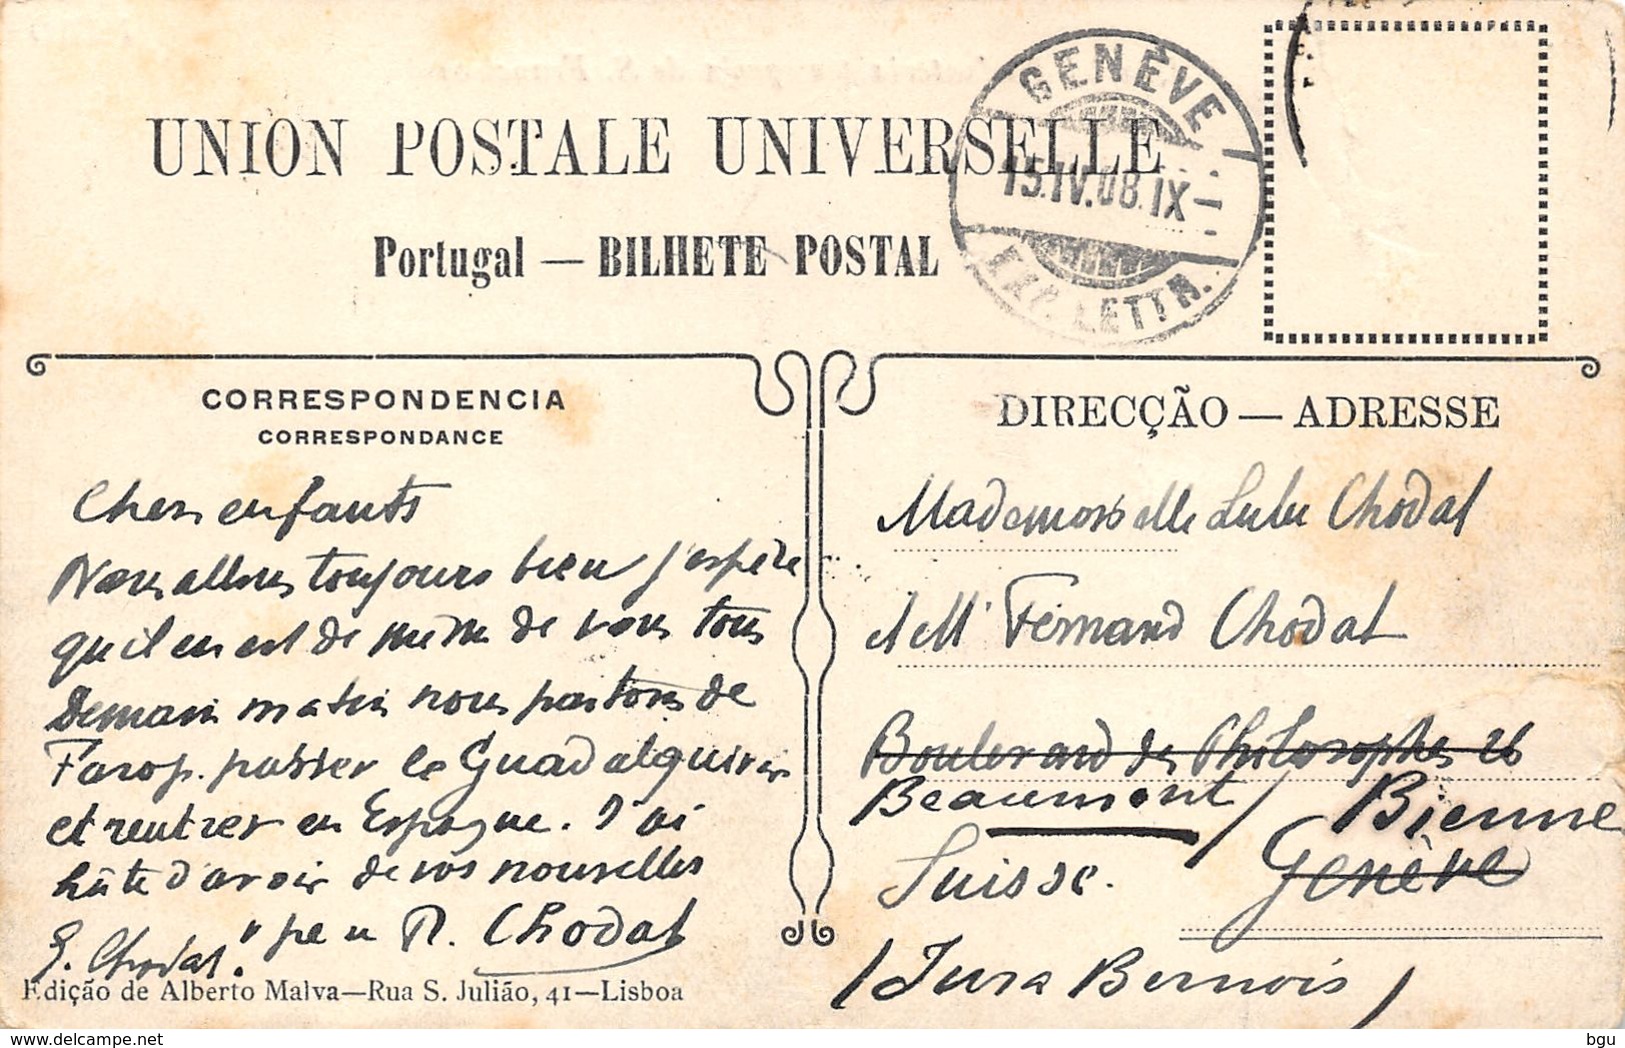 GENÈVE
15.IV.08.IX
EXP. LETTR.
UNION POSTALE UNIVERSELLE
Portugal — BILHETE POSTAL
CORRESPONDENCIA
CORRESPONDANCE
Chers enfants
Nous allons toujours bien j'espère
qu'il en est de même de vous tous
Demain matin nous partons de
Faro p. passer le Guadalquivir
et rentrer en Espagne. J'ai
hâte d'avoir de vos nouvelles
"pe R. Chodat
G. Chodat.
Edição de Alberto Malva—Rua S. Julião, 41—Lisboa
DIRECÇÃO — ADRESSE
Mademoiselle Lulu Chodat
et Mr Fernand Chodat
Boulevard des Philosophes 26
Beaumont / Bienne
Suisse. Genève
(Jura Bernois)
delcampe.net
bgu